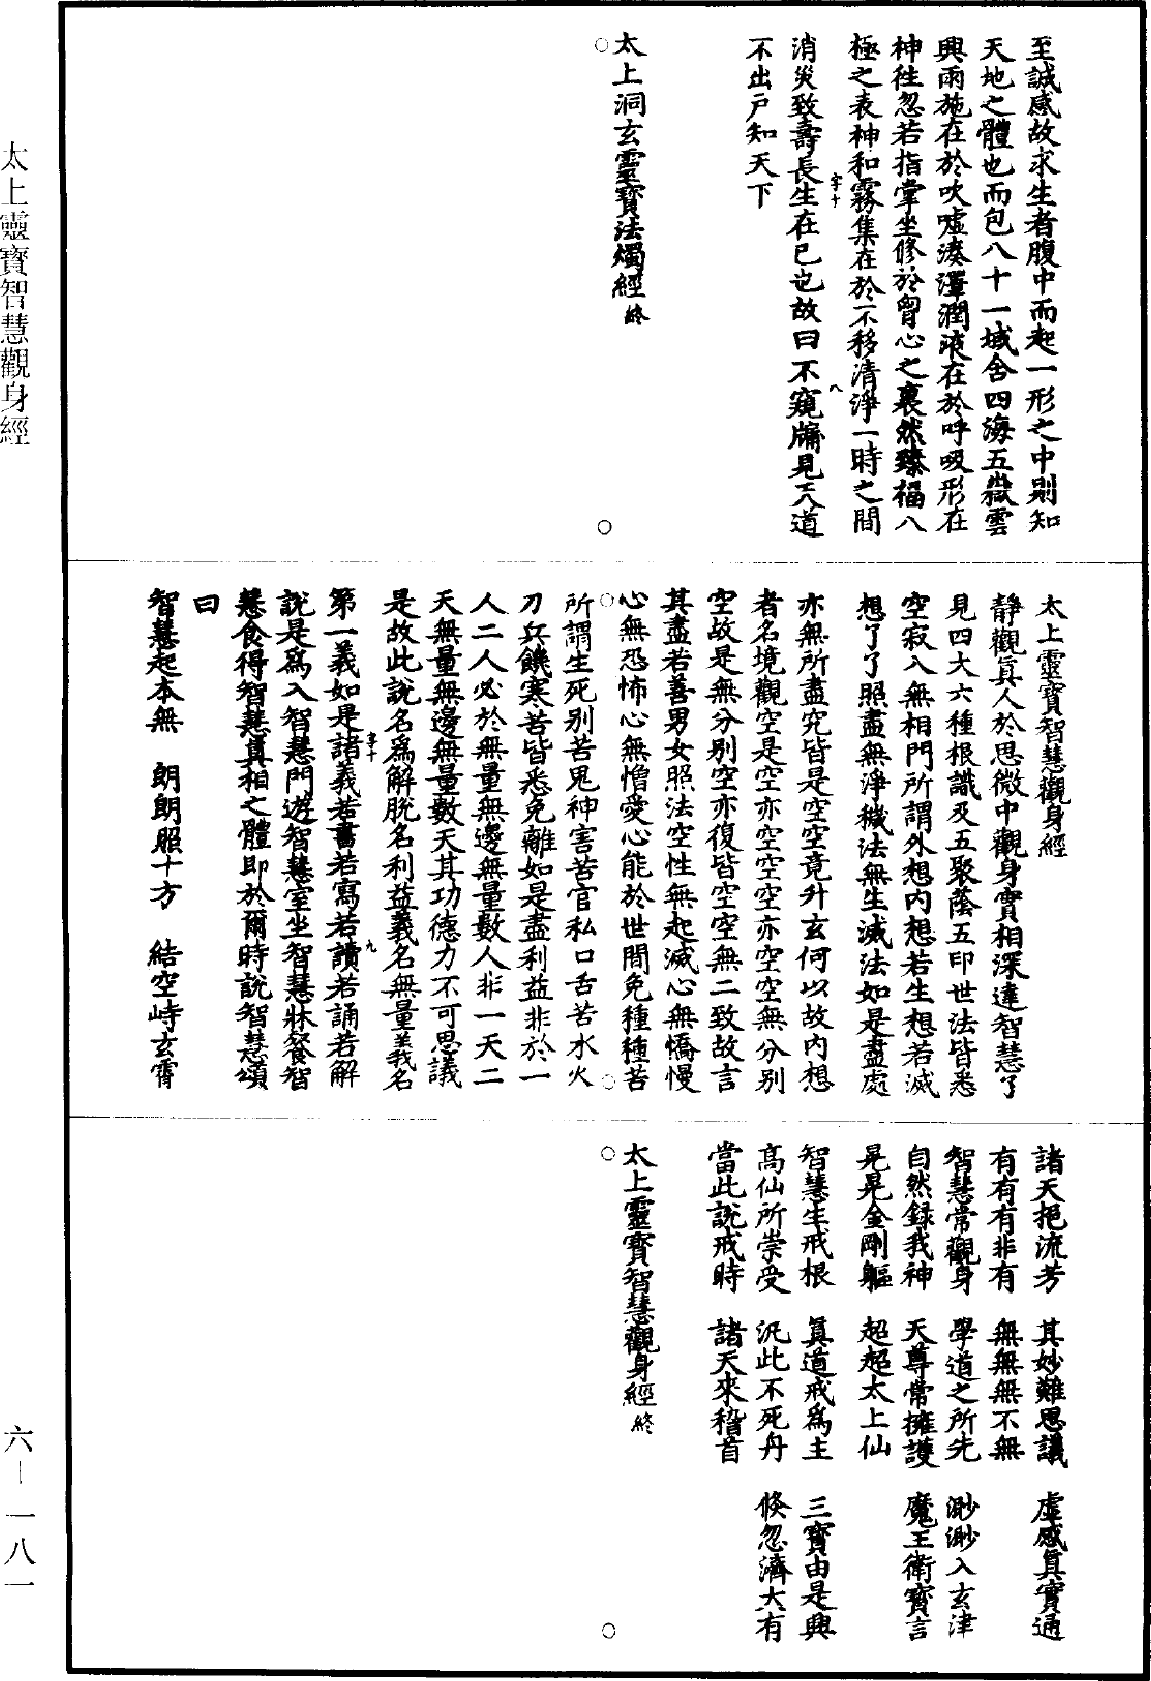 至誠感故求生者腹中而起一形之中則知
天地之體也而包八十一城舍四海五嶽雲
興雨施在於吹噓湊澤潤液在於呼吸形在
神徃忽若指掌坐修於胷心之裏然臻福八
極之表神和霧集在於不移清淨一時之間
消災致壽長生在已也故曰不窺牖見天道
不出戶知天下
太上洞玄靈寶法燭經 終
太上靈寶智慧觀身經
靜觀眞人於思微中觀身實相深達智慧了
見四大六種根識及五聚蔭五印世法皆悉
空寂入無相門所謂外想內想若生想若滅
想了了照盡無淨穢法無生滅法如是盡處
亦無所盡究皆是空空竟升玄何以故內想
者名境觀空是空亦空空空亦空空無分別
空故是無分別空亦復皆空空無二致故言
其盡若善男女照法空性無起滅心無憍慢
心無恐怖心無憎愛心能於世間免種種苦
所謂生死別苦鬼神害苦官私口舌苦水火
刀兵饑寒苦皆悉免離如是盡利益非於一
人二人必於無量無邊無量數人非一天二
天無量無邊無量數天其功德力不可思議
是故此說名爲解脫名利益義名無量義名
第一義如是諸義若書若寫若讀若誦若解
說是爲入智慧門遊智慧室坐智慧牀餐智
慧食得智慧眞相之體即於爾時說智慧頌
曰
智慧起本無 朗朗照十方 結空峙玄霄
諸天挹流芳 其妙難思議 虛感眞實通
有有有非有 無無無不無
智慧常觀身 學道之所先 渺渺入玄津
自然錄我神 天尊常擁護 魔王衛寶言
晃晃金剛軀 超超太上仙
智慧生戒根 眞道戒爲主 三寶由是興
高仙所崇受 汎此不死舟 倏忽濟大有
當此說戒時 諸天來稽首
太上靈寶智慧觀身經 終
太上靈寶智慧觀身經
六－一八一